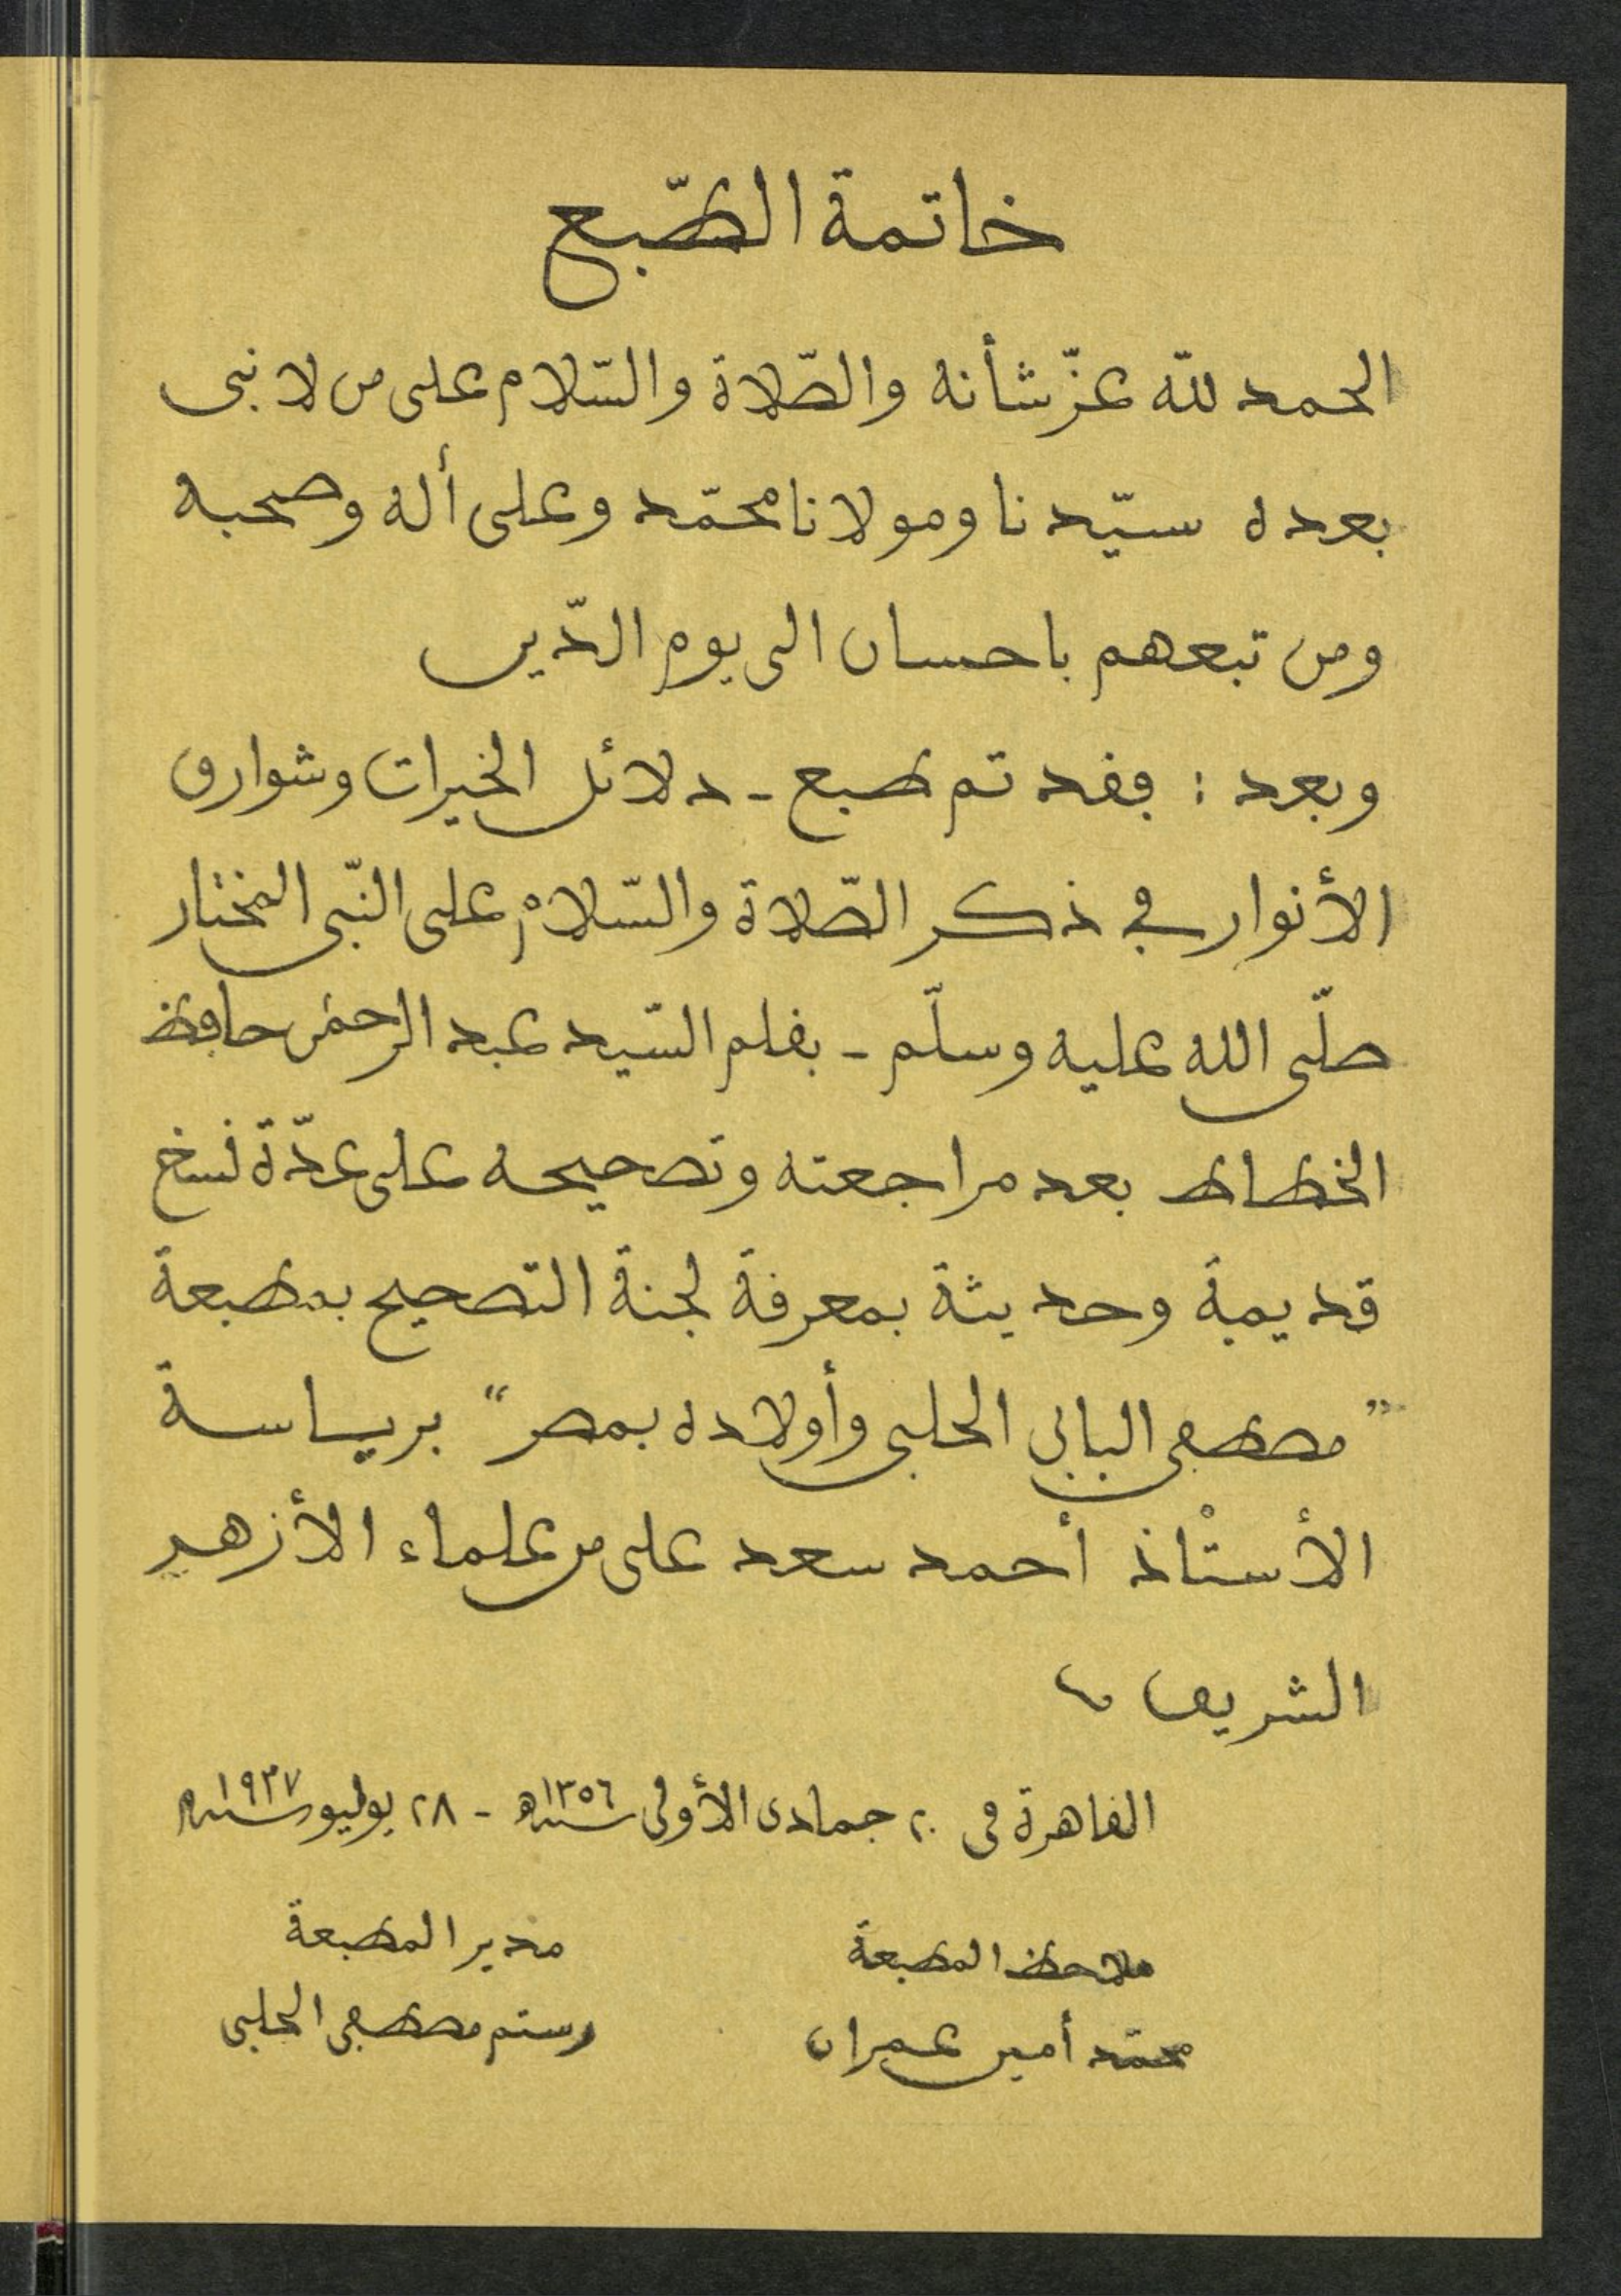 خاتمة الطّبع
الحمد للّه عزّ شأنه والصّلاة والسّلام على من لا نبى
بعده سيّدنا ومولانا محمّد وعلى أله وصحبه
ومن تبعهم باحسان الى يوم الدّين
وبعد : فقد تم طبع - دلائل الخيرات وشوارق
الأنوار في ذكر الصّلاة والسّلام على النّبى المختار
صلّى الله عليه وسلّم - بقلم السّيد عبد الرحمن حافظ
الخطاط بعد مراجعته وتصحيحه على عدّة نسخ
قديمة وحديثة بمعرفة لجنة التصحيح بمطبعة
"مصطفى البابى الحلبى وأولاده بمصر" برياسة
الأستاذ أحمد سعد على من علماء الأزهر
الشريف
القاهرة فى ٢٠ جمادى الأولى سنة ١٣٥٦ه - ٢٨ يوليو سنة ١٩٣٧م
ملاحظ المطبعة مدير المطبعة
محمّد أمين عمران رستم مصطفى الحلبى